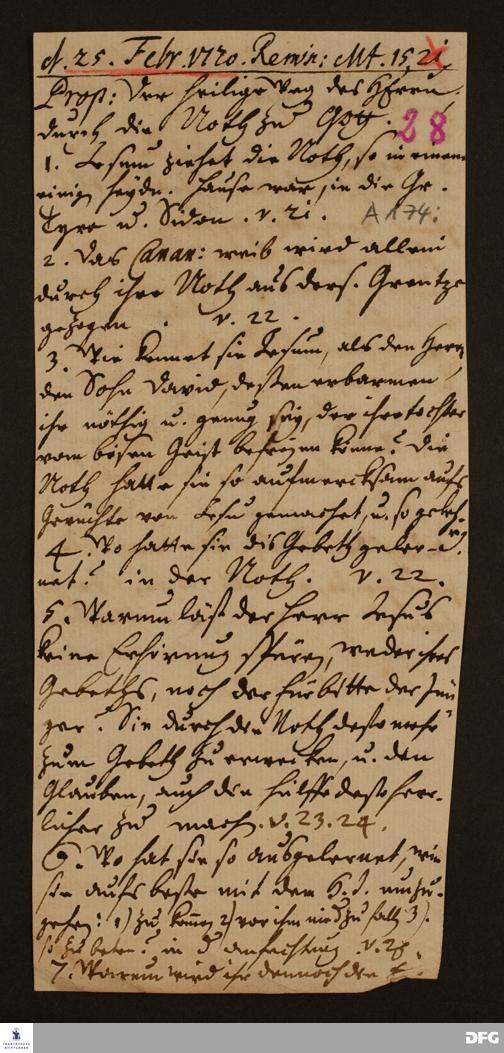 d. 25. Febr. 1720. Remin: Mt. 15, 21,
Prop: Der heilige Weg des HErrn
durch die Noth zu Gott.
28
1. Jesum ziehet die Noth, so in einem
einigen heydn. Hause war, in die Gr.
Tyro u. Sidon. v. 21.
A 174:
2. Das Canan: weib wird allein
durch ihre Noth aus ders. Grentze
gezogen. v. 22.
3. Wie kennet sie Jesum, als den Herrn,
den Sohn David, deßen erbarmen
ihr nöthig u. genug sey, der ihre tochter
vom bösen Geist befreyen könne? Die
Noth hatte sie so aufmercksam aufs
Gerüchte von Jesu gemachet, u. so
4. Wo hatte sie dis Gebeth geler-
net? in der Noth. v. 22.
5. Warum läst der Herr Jesus
keine Erhörung spüren, weder ihres
Gebeths, noch der fürbitte der Jün
ger? Sie durch die Noth desto mehr
zum Gebeth zu erwecken, u. den
Glauben, auch die hülffe desto herr-
licher zu machen. v. 23. 24.
6. Wo hat sie so ausgelernet, wie
sie aufs beste mit dem H. J. umzu-
gehen: 1) zu kommen 2) vor ihm nied. zu fallen 3)
so zu beten? in d. anfechtung v. 25.
7. Warum wird ihr dennoch den
FRANCKESCHE STIFTUNGEN
DFG